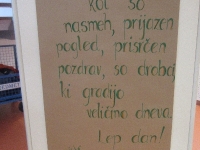 kot so
nasmeh, prijazen
pogled, prisrčen
pozdrav, so drobci,
ki gradijo
veličino dneva.
Lep dan!